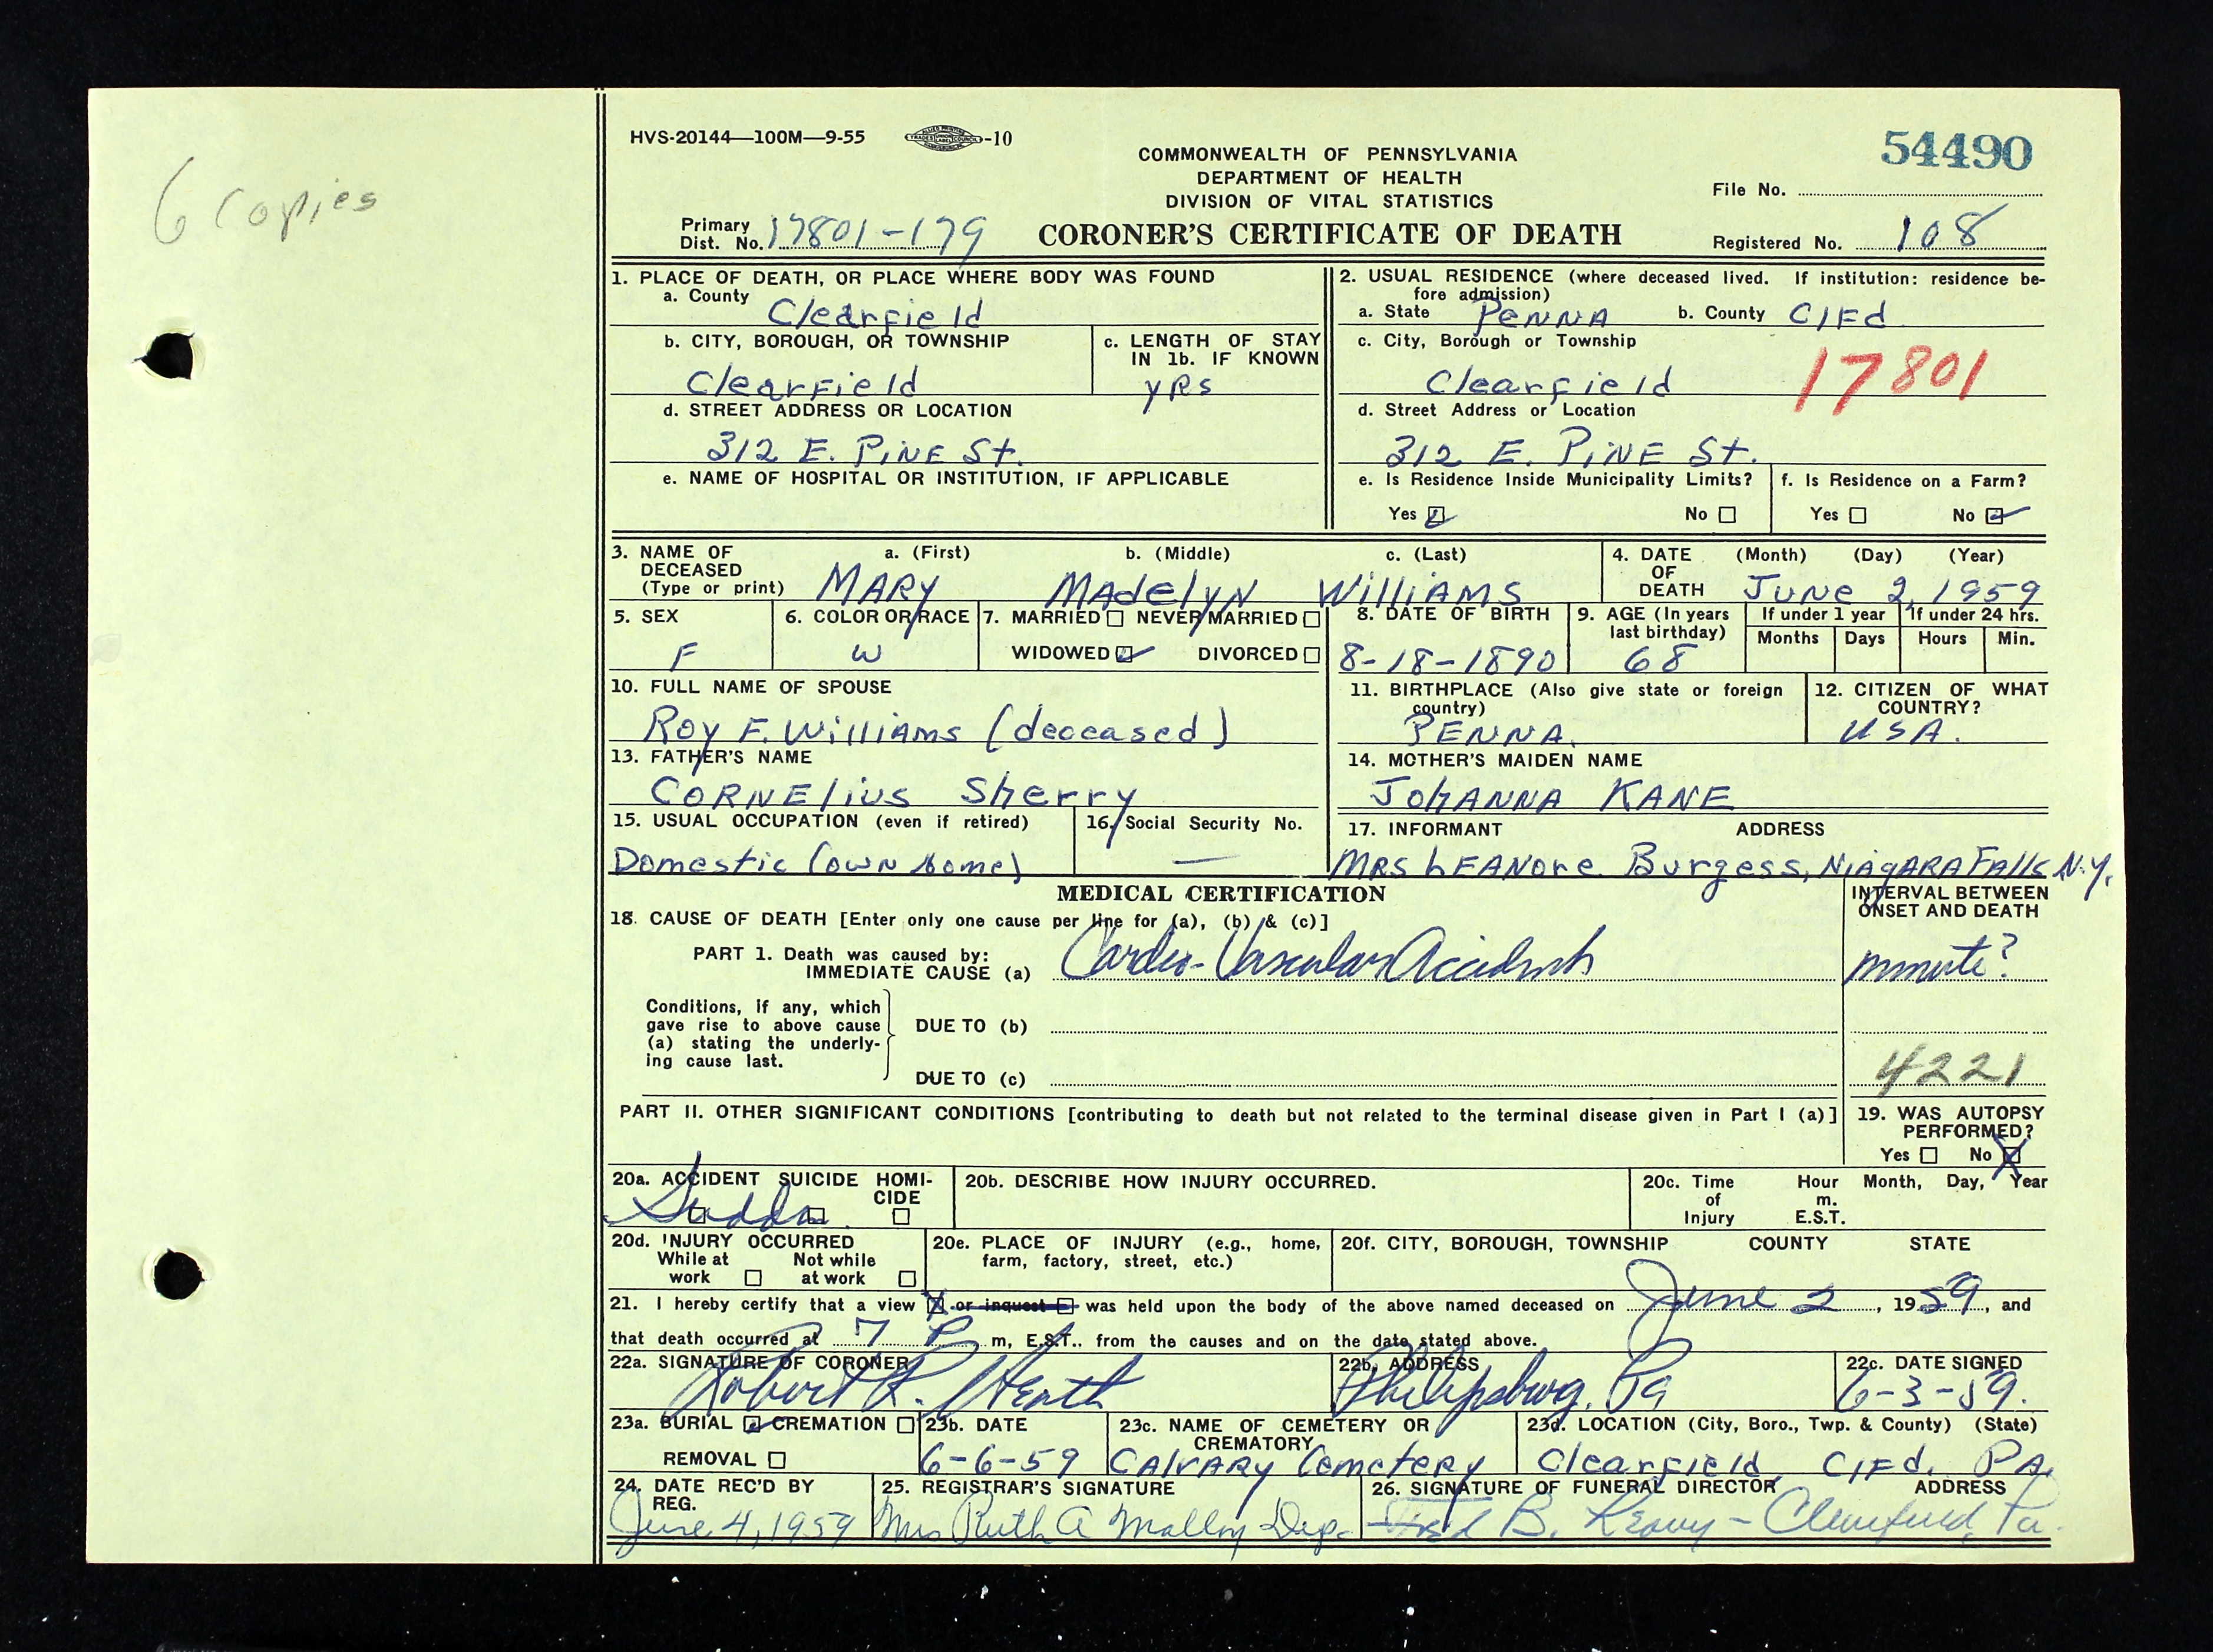 6 Copies
HVS-20144—100M—9-55 -10
54490
COMMONWEALTH OF PENNSYLVANIA
DEPARTMENT OF HEALTH
DIVISION OF VITAL STATISTICS
File No.
Primary Dist. No. 17801-179
CORONER'S CERTIFICATE OF DEATH
Registered No. 108
1. PLACE OF DEATH, OR PLACE WHERE BODY WAS FOUND
a. County Clearfield
2. USUAL RESIDENCE (where deceased lived. If institution: residence be-
fore admission)
a. State PENNA b. County ClFd
b. CITY, BOROUGH, OR TOWNSHIP
Clearfield
c. LENGTH OF STAY
IN 1b. IF KNOWN
yRs
c. City, Borough or Township
Clearfield
17801
d. STREET ADDRESS OR LOCATION
312 E. PINE St.
d. Street Address or Location
312 E. PINE St.
e. NAME OF HOSPITAL OR INSTITUTION, IF APPLICABLE
e. Is Residence Inside Municipality Limits?
Yes No
f. Is Residence on a Farm?
Yes No
3. NAME OF DECEASED (Type or print)
a. (First) b. (Middle) c. (Last)
MARY MAdelyN WilliAMS
4. DATE OF DEATH (Month) (Day) (Year)
JUNE 2, 1959
5. SEX
F
6. COLOR OR RACE
W
7. MARRIED NEVER MARRIED
WIDOWED DIVORCED
8. DATE OF BIRTH
8-18-1890
9. AGE (In years
last birthday)
68
If under 1 year
Months Days
If under 24 hrs.
Hours Min.
10. FULL NAME OF SPOUSE
Roy F. WilliAMS (deceased)
11. BIRTHPLACE (Also give state or foreign
country)
PENNA.
12. CITIZEN OF WHAT
COUNTRY?
USA.
13. FATHER'S NAME
CORNElius Sherry
14. MOTHER'S MAIDEN NAME
JohANNA KANE
15. USUAL OCCUPATION (even if retired)
Domestic (owN home)
16. Social Security No.
—
17. INFORMANT ADDRESS
MRS LEANore Burgess, NiAgARA FAlls N.Y.
MEDICAL CERTIFICATION
INTERVAL BETWEEN
ONSET AND DEATH
18. CAUSE OF DEATH [Enter only one cause per line for (a), (b) & (c)]
PART 1. Death was caused by:
IMMEDIATE CAUSE (a) Cardio-Vascular Accident
minute?
Conditions, if any, which
gave rise to above cause
(a) stating the underly-
ing cause last.
DUE TO (b)
DUE TO (c)
4221
PART II. OTHER SIGNIFICANT CONDITIONS [contributing to death but not related to the terminal disease given in Part I (a)]
19. WAS AUTOPSY
PERFORMED?
Yes No X
20a. ACCIDENT SUICIDE HOMI-
CIDE
Sudden
20b. DESCRIBE HOW INJURY OCCURRED.
20c. Time of Injury Hour m. E.S.T. Month, Day, Year
20d. INJURY OCCURRED
While at work Not while at work
20e. PLACE OF INJURY (e.g., home,
farm, factory, street, etc.)
20f. CITY, BOROUGH, TOWNSHIP COUNTY STATE
21. I hereby certify that a view X or inquest was held upon the body of the above named deceased on June 2, 1959, and
that death occurred at 7 P m, E.S.T., from the causes and on the date stated above.
22a. SIGNATURE OF CORONER
Robert K. Heath
22b. ADDRESS
Philipsburg, Pa
22c. DATE SIGNED
6-3-59.
23a. BURIAL CREMATION
REMOVAL
23b. DATE
6-6-59
23c. NAME OF CEMETERY OR
CREMATORY
CAlvARy CemeteRy
23d. LOCATION (City, Boro., Twp. & County) (State)
Clearfield, ClFd. PA.
24. DATE REC'D BY
REG.
June 4, 1959
25. REGISTRAR'S SIGNATURE
Mrs Ruth A Malloy Dep.
26. SIGNATURE OF FUNERAL DIRECTOR ADDRESS
B. Leavy - Clearfield, Pa.